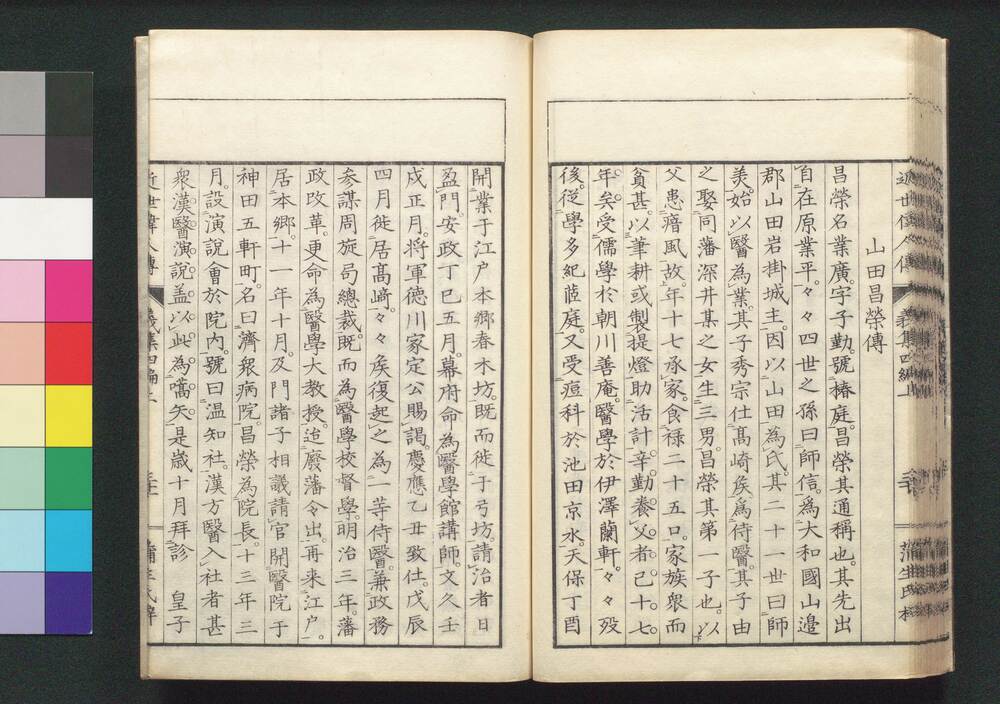 近世偉人傳 義集四編上 蒲生氏梓
山田昌榮傳
昌榮名業廣。字子勤。號椿庭。昌榮其通稱也。其先出
自在原業平。々々四世之孫曰師信。爲大和國山邊
郡山田岩掛城主。因以山田爲氏。其二十一世曰師
美。始以醫為業。其子秀宗仕髙崎矦為侍醫。其子由
之娶同藩深井某之女生三男。昌榮其第一子也。以
父患瘖風故。年十七承家。食禄二十五口。家族衆而
貧甚。以筆耕或製提燈助活計。辛勤養父者。已十七
年矣。受儒學於朝川善庵。醫學於伊澤蘭軒。々々歿
後。從學多紀茝庭。又受痘科於池田京水。天保丁酉
開業于江户本郷春木坊。既而徙于弓坊。請治者日
盈門。安政丁巳五月。幕府命為醫學館講師。文久壬
戌正月。將軍德川家定公賜謁。慶應乙丑致仕。戊辰
四月徙居髙﨑。々々矦復起之為一等侍醫。兼政務
参謀周旋局總裁。既而為醫學校督學。明治三年。藩
政改革。更命為醫學大教授。迨廢藩令出。再来江户。
居本郷。十一年十月。及門諸子相議請官開醫院于
神田五軒町。名曰濟衆病院。昌榮為院長。十三年三
月。設演説會於院内。號曰温知社。漢方醫入社者甚
衆。漢醫演説。盖以此為嚆矢。是歳十月拜診 皇子
近世偉人傳 義集四編上 蒲生氏梓